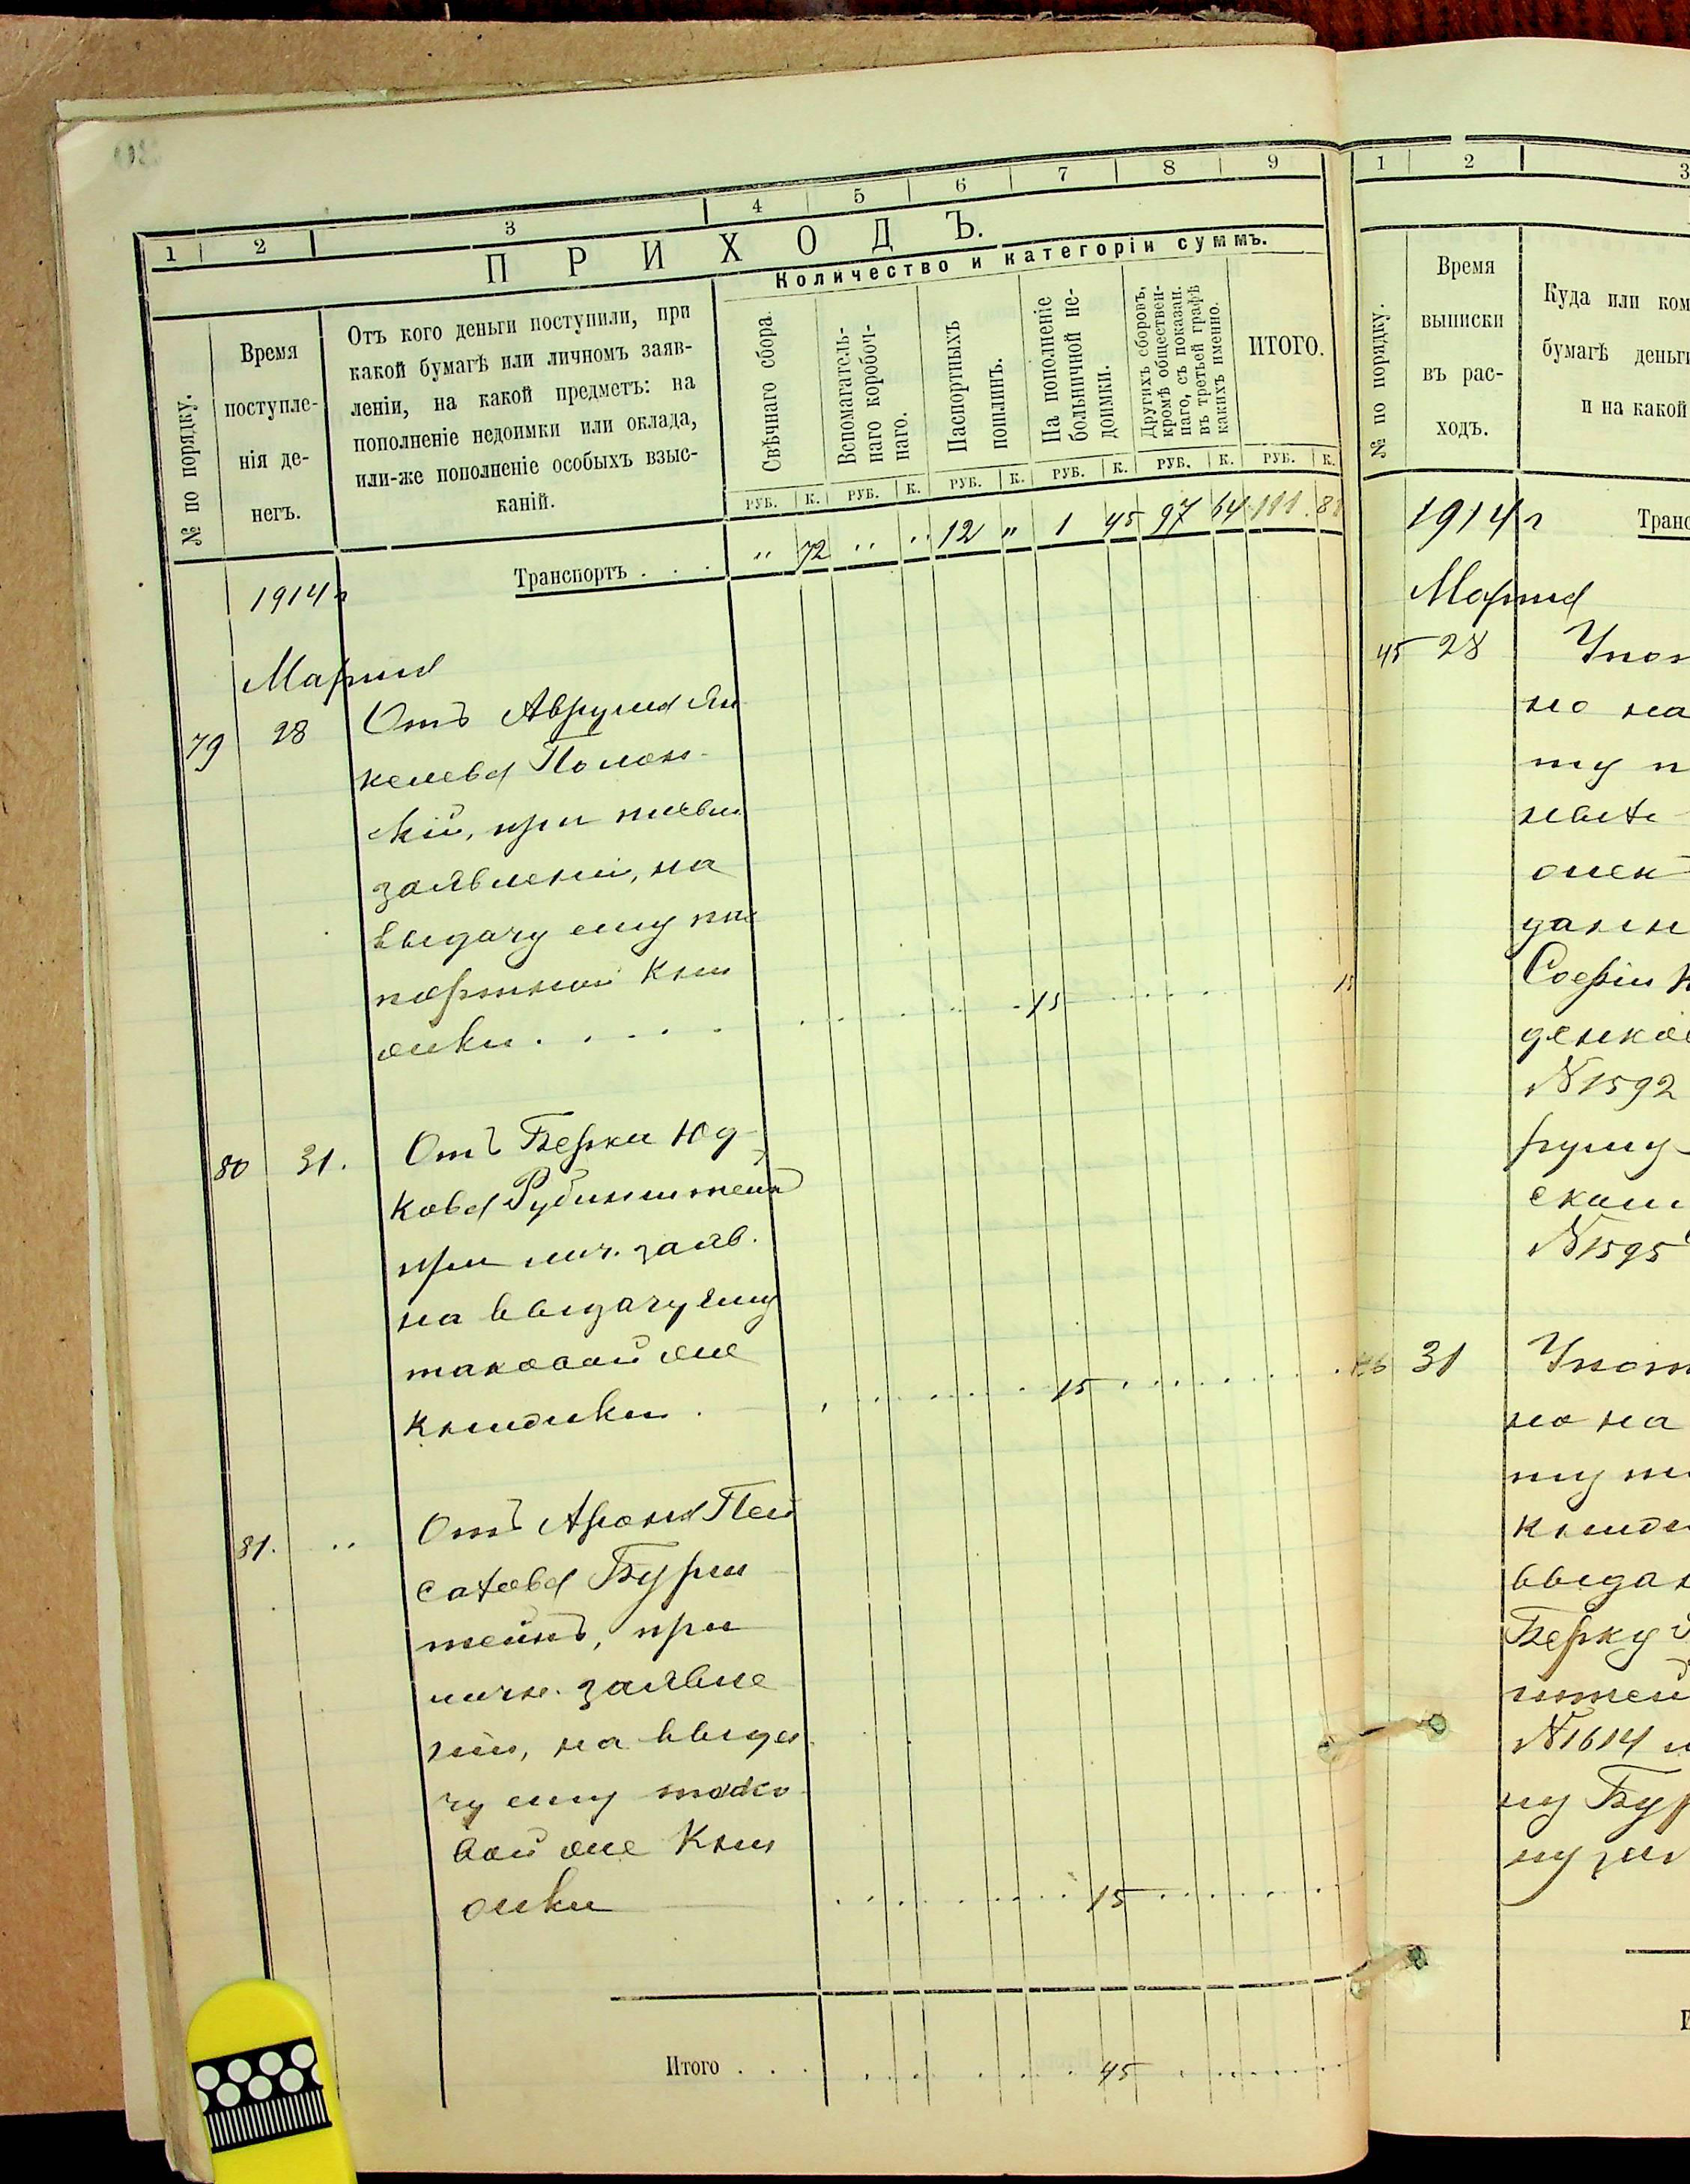 1 2 3 4 5 6 7 8 9
ПРИХОДЪ.
Количество и категорiи суммъ.
№ по порядку.
Время
поступле-
нiя де-
негъ.
Отъ кого деньги поступили, при
какой бумагѣ или личномъ заяв-
ленiи, на какой предметъ: на
пополненiе недоимки или оклада,
или-же пополненiе особыхъ взыс-
канiй.
Свѣчнаго сбора.
Вспомагатель-
наго коробоч-
наго.
Паспортныхъ
пошлинъ.
На пополненiе
больничной не-
доимки.
Другихъ сборовъ,
кромѣ обществен-
наго, съ показан.
въ третьей графѣ
какихъ именно.
ИТОГО.
РУБ. К. РУБ. К. РУБ. К. РУБ. К. РУБ. К. РУБ. К.
1914 г
Транспортъ . . . " 72 " " 12 " 1 45 97 64 111
Марта
79 28 Отъ Аврума Ян
келева Полон-
скiй, при
заявленiи, на
выдачу ему
кни
жки . . . . 15 15
80 31. Отъ Берки Юд-
кова Рубинштейнъ
при лич. заяв.
на выдачу ему
таковой же
книжки . 15
81. " Отъ Арона Пей
сахова Бурш
тейнъ, при
личн. заявле
нiи, на выда
чу ему тако
вой же Кни
жки 15
Итого . . . 45
1 2 3
№ по порядку.
Время
выписки
въ рас-
ходъ.
Куда или ком
бумагѣ деньги
и на какой
1914 г Транс
Марта
45 28 Упот
но на
ту п
Софiи К
№ 1592
№ 1595
46 31 Упот
но на
ту
книж
выдан
Берку
штей
№ 1614 и
ну Бур